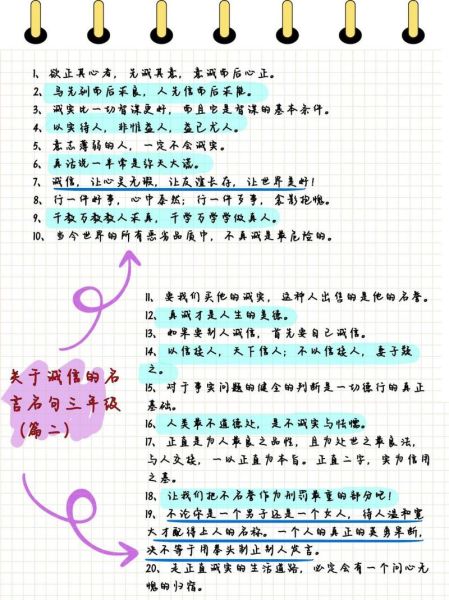 1、欲正其心者，先诚其意，意诚而后心正。
2、马先驯而后求良，人先信而后求能。
3、诚实比一切智谋更好，而且它是智谋的基本条件。
4、以实待人，非惟益人，益己尤大。
5、意志薄弱的人，一定不会诚实。
6、真话说一半常是弥天大谎。
7、诚信，让心灵无瑕，让友谊长存，让世界美好！
8、行一件好事，心中泰然；行一件歹事，衾影抱愧。
9、千教万教教人求真，千学万学学做真人。
10、当今世界的所有恶劣品质中，不真诚是最危险的。
11、要我们买他的诚实，这种人出售的是他的名誉。
12、真诚才是人生的美德。
13、如果要别人诚信，首先要自己诚信。
14、以信接人，天下信人；不以信接人，妻子疑
之。
15、对于事实问题的健全的判断是一切德行的真正
基础。
关于诚信的名
言名句三年级
（篇二）
16、人类最不道德处，是不诚实与怯懦。
17、正直是为人最良之品性，且为处世之最良法，
与人交接，一以正直为本旨。正直二字，实为信用
之基。
18、让我们把不名誉作为刑罚最重的部分吧！
19、不论你是一个男子还是一个女人，待人温和宽
大才配得上人的名称。一个人的真正的英勇果断，
决不等于用拳头制止别人发言。
20、走正直诚实的生活道路，必定会有一个问心无
愧的归宿。